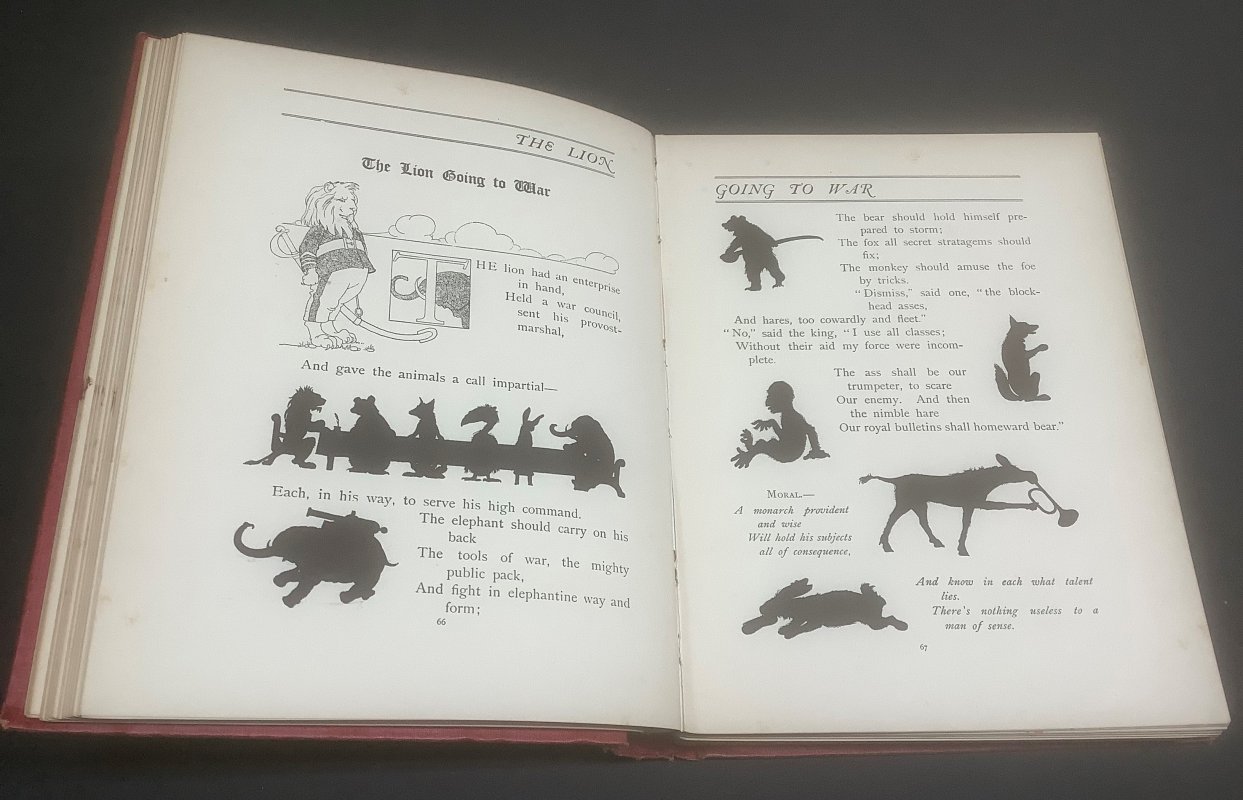 THE LION
The Lion Going to War
THE lion had an enterprise
in hand,
Held a war council,
sent his provost-
marshal,
And gave the animals a call impartial—
Each, in his way, to serve his high command.
The elephant should carry on his
back
The tools of war, the mighty
public pack,
And fight in elephantine way and
form;
66
GOING TO WAR
The bear should hold himself pre-
pared to storm;
The fox all secret stratagems should
fix;
The monkey should amuse the foe
by tricks.
"Dismiss," said one, "the block-
head asses,
And hares, too cowardly and fleet."
"No," said the king, "I use all classes;
Without their aid my force were incom-
plete.
The ass shall be our
trumpeter, to scare
Our enemy. And then
the nimble hare
Our royal bulletins shall homeward bear."
MORAL.—
A monarch provident
and wise
Will hold his subjects
all of consequence,
And know in each what talent
lies.
There's nothing useless to a
man of sense.
67